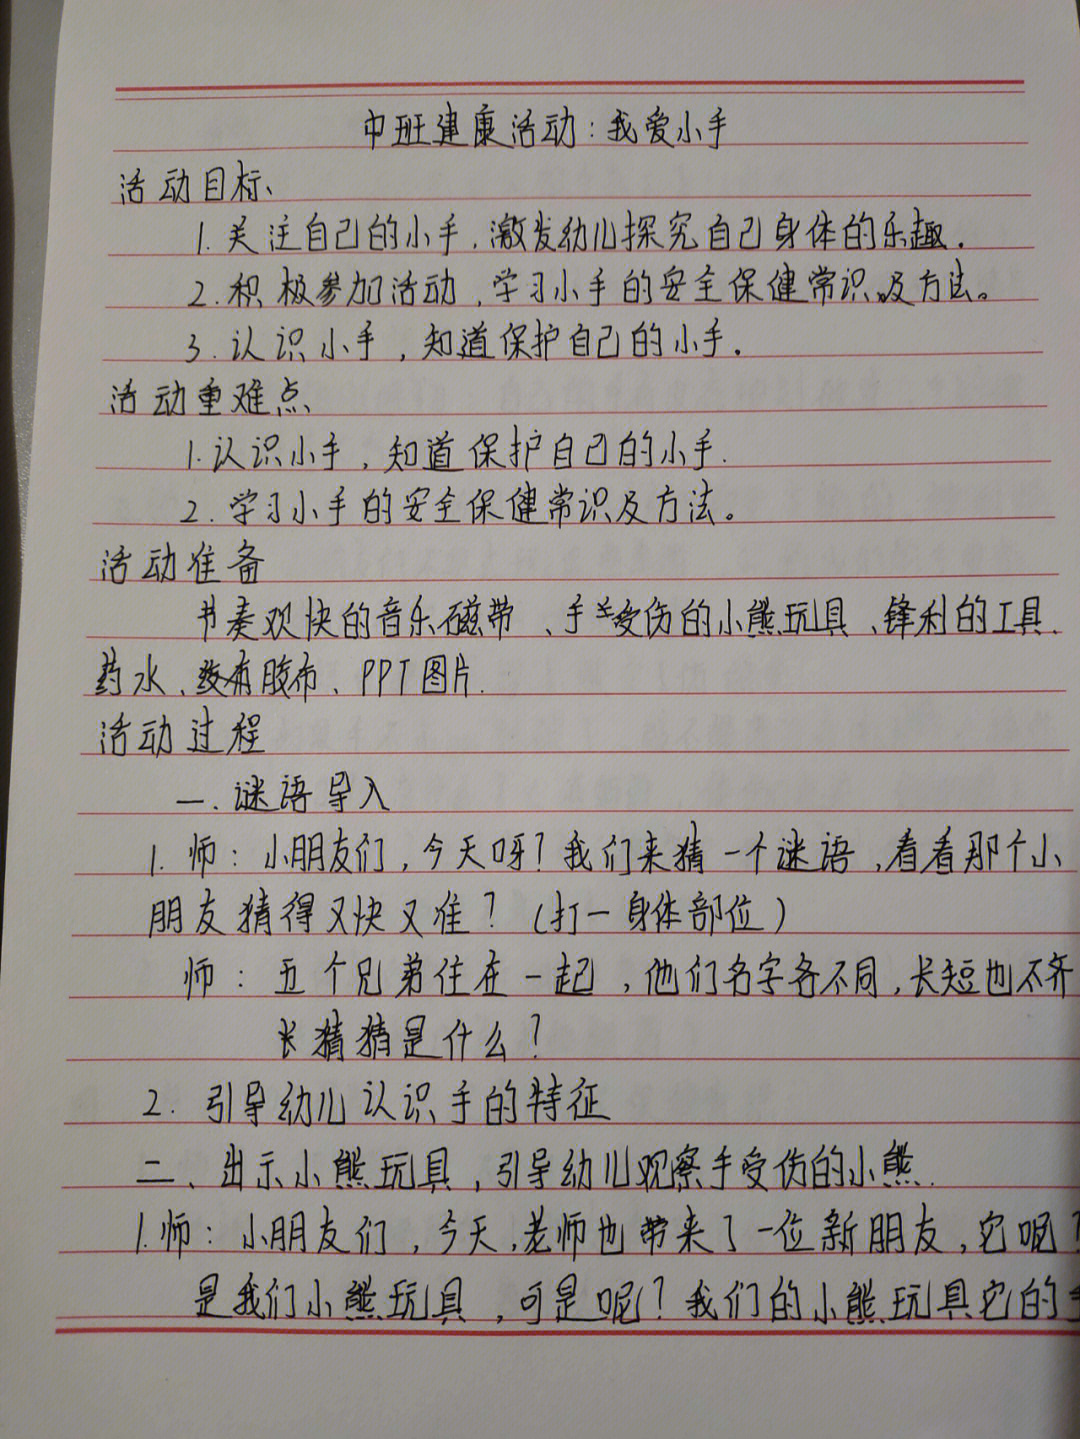 中班健康活动:我爱小手
活动目标、
1.关注自己的小手,激发幼儿探究自己身体的乐趣.
2.积极参加活动,学习小手的安全保健常识及方法。
3.认识小手,知道保护自己的小手.
活动重难点
1.认识小手,知道保护自己的小手.
2.学习小手的安全保健常识及方法。
活动准备
节奏欢快的音乐磁带、手受伤的小熊玩具、锋利的工具、
药水、胶布、PPT图片.
活动过程
一.谜语导入
1.师:小朋友们,今天呀?我们来猜一个谜语,看看那个小
朋友猜得又快又准?(打一身体部位)
师:五个兄弟住在一起,他们名字各不同,长短也不齐
长猜猜是什么?
2.引导幼儿认识手的特征
二、出示小熊玩具,引导幼儿观察手受伤的小熊.
1.师:小朋友们,今天,老师也带来了一位新朋友,它呢?
是我们小熊玩具,可是呢?我们的小熊玩具它的